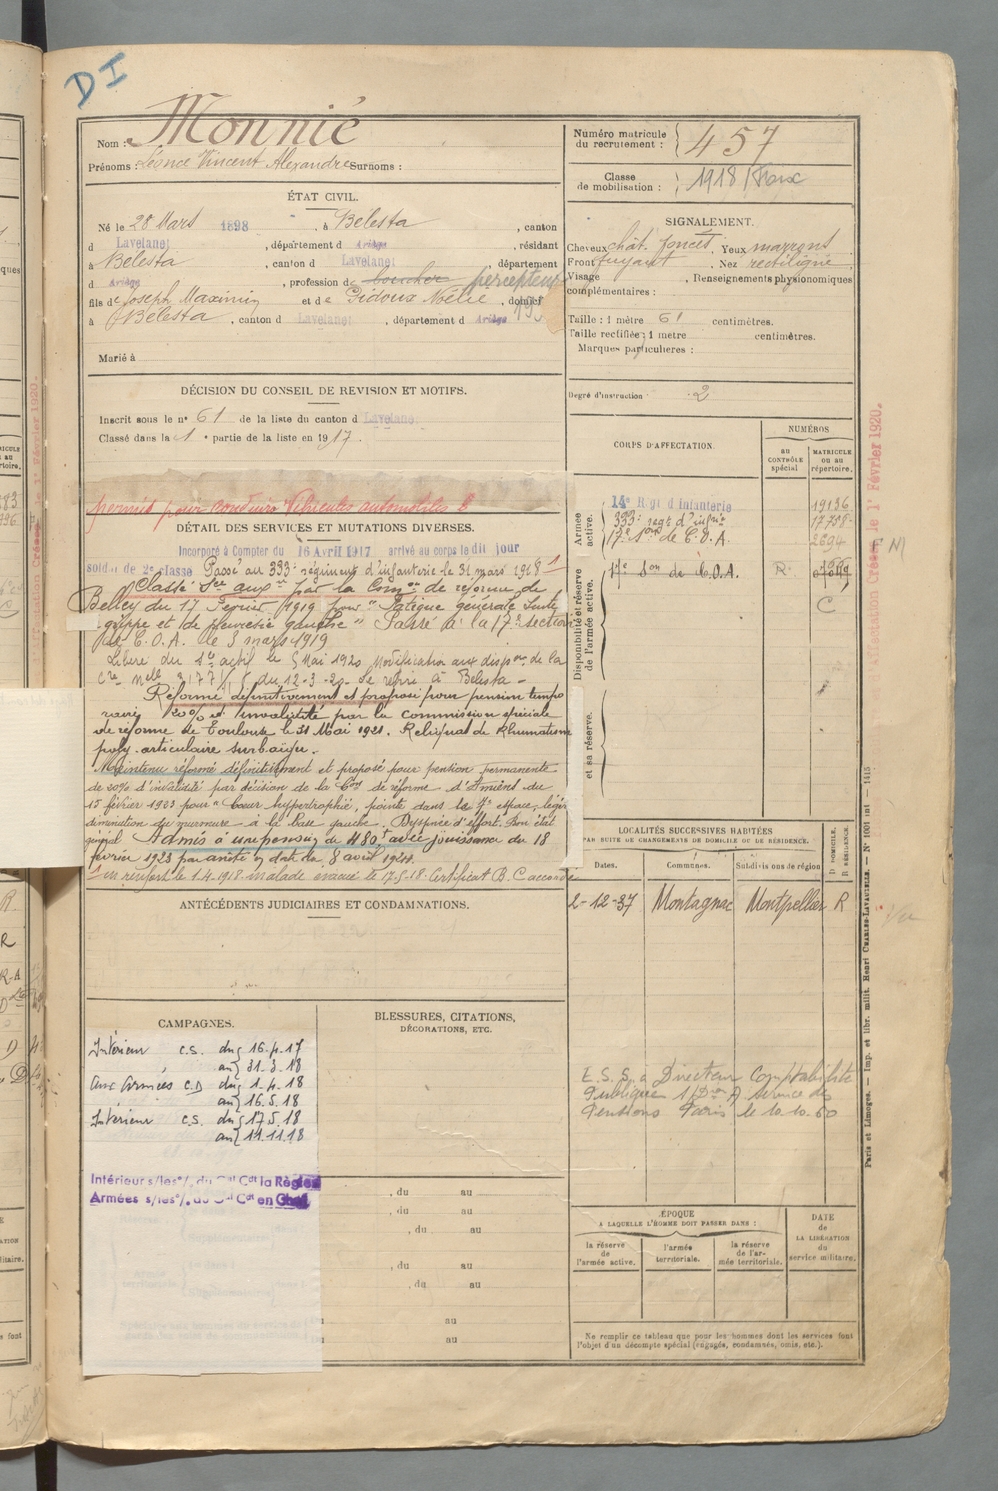 DI
Nom : Monnié
Prénoms : Léonce Vincent Alexandre Surnoms :
ÉTAT CIVIL.
Né le 28 Mars 1898, à Bélesta, canton
d Lavelanet, département d Ariège, résidant
à Bélesta, canton d Lavelanet, département
d Ariège, profession de boucher percepteur
fils de Joseph Maximin et de Pidoux Noélie, domicil
à Bélesta, canton d Lavelanet, département d Ariège 193
Marié à
DÉCISION DU CONSEIL DE REVISION ET MOTIFS.
Inscrit sous le n° 61 de la liste du canton d Lavelanet
Classé dans la 1e partie de la liste en 1917.
permis pour conduire Véhicules automobiles
DÉTAIL DES SERVICES ET MUTATIONS DIVERSES.
Incorporé à Compter du 16 Avril 1917 arrivé au corps le dit jour
soldat de 2e classe Passé au 333e régiment d'infanterie le 31 mars 1918 1
Classé Sce aux re par la Comon de réforme de
Belley du 17 Février 1919 pour "
grippe et de pleurésie gauche" Passé à la 17e section
de C.O.A. le 3 mars 1919
Libéré du Sce actif le 5 Mai 1920
du 12-3-20 Se retire à Bélesta -
Réformé définitivement et proposé pour pension tempo
raire 20% d'invalidité par la commission spéciale
de réforme de Toulouse le 31 Mai 1921. Reliquat de Rhumatisme
poly-articulaire surbaigu.
Maintenu réformé définitivement et proposé pour pension permanente
de 20% d'invalidité par décision de la Con de réforme d'Amiens du
15 février 1923 pour "Cœur hypertrophié, pointe dans le 4e espace, légère
diminution du murmure à la base gauche. Dyspnée d'effort. Bon état
général Admis à une pension de 480f avec jouissance du 18
février 1923 par arrêté en date du 8 avril 1924.
1 en renfort le 1.4.1918 malade évacué le 17-5-18 Certificat B.C accordé
ANTÉCÉDENTS JUDICIAIRES ET CONDAMNATIONS.
CAMPAGNES.
Intérieur C.S. du 16.4.17
au 31.3.18
Aux Armées C.D du 1.4.18
au 16.5.18
Intérieur C.S. du 17.5.18
au 11.11.18
Intérieur s/les o/. du Gal Cdt la Région
Armées s/les o/. du Gal Cdt en Chef
BLESSURES, CITATIONS,
DÉCORATIONS, ETC.
, du au
, du au
, du au
, du au
, du au
au
au
Numéro matricule
du recrutement : 457
Classe
de mobilisation : 1918 / Foix
SIGNALEMENT.
Cheveux chât. foncés, Yeux marrons
Front fuyant, Nez rectiligne
Visage , Renseignements physionomiques
complémentaires :
Taille : 1 mètre 61 centimètres.
Taille rectifiée : 1 mètre centimètres.
Marques particulières :
Degré d'instruction 2
CORPS D'AFFECTATION.
NUMÉROS
au
CONTRÔLE
spécial
MATRICULE
ou au
répertoire.
Armée
active.
14e Régt d'Infanterie 19136
333e regt d'infrie 17758
17e son de C.O.A. 2694
Disponibilité et réserve
de l'armée active.
17e Son de C.O.A. R
C
et sa réserve.
LOCALITÉS SUCCESSIVES HABITÉES
PAR SUITE DE CHANGEMENTS DE DOMICILE OU DE RÉSIDENCE.
Dates. Communes. Subdivisions de région
D DOMICILE.
R RÉSIDENCE.
2-12-37 Montagnac Montpellier R
E.S.S. à Directeur Comptabilité
Publique 1/Don A service des
Pensions Paris le 10.10.60
ÉPOQUE
A LAQUELLE L'HOMME DOIT PASSER DANS :
la réserve
de
l'armée active.
l'armée
territoriale.
la réserve
de l'ar-
mée territoriale.
DATE
de
LA LIBÉRATION
du
service militaire.
Ne remplir ce tableau que pour les hommes dont les services font
l'objet d'un décompte spécial (engagés, condamnés, omis, etc.).
Affectation Créée le 1er Février 1920.
Paris et Limoges. — Imp. et libr. milit. Henri CHARLES-LAVAUZELLE. — N° 1001 int — 1415